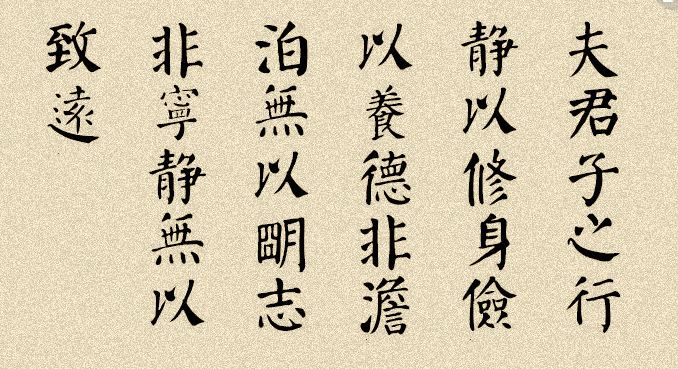 夫君子之行
静以修身儉
以養德非澹
泊無以明志
非寧静無以
致遠